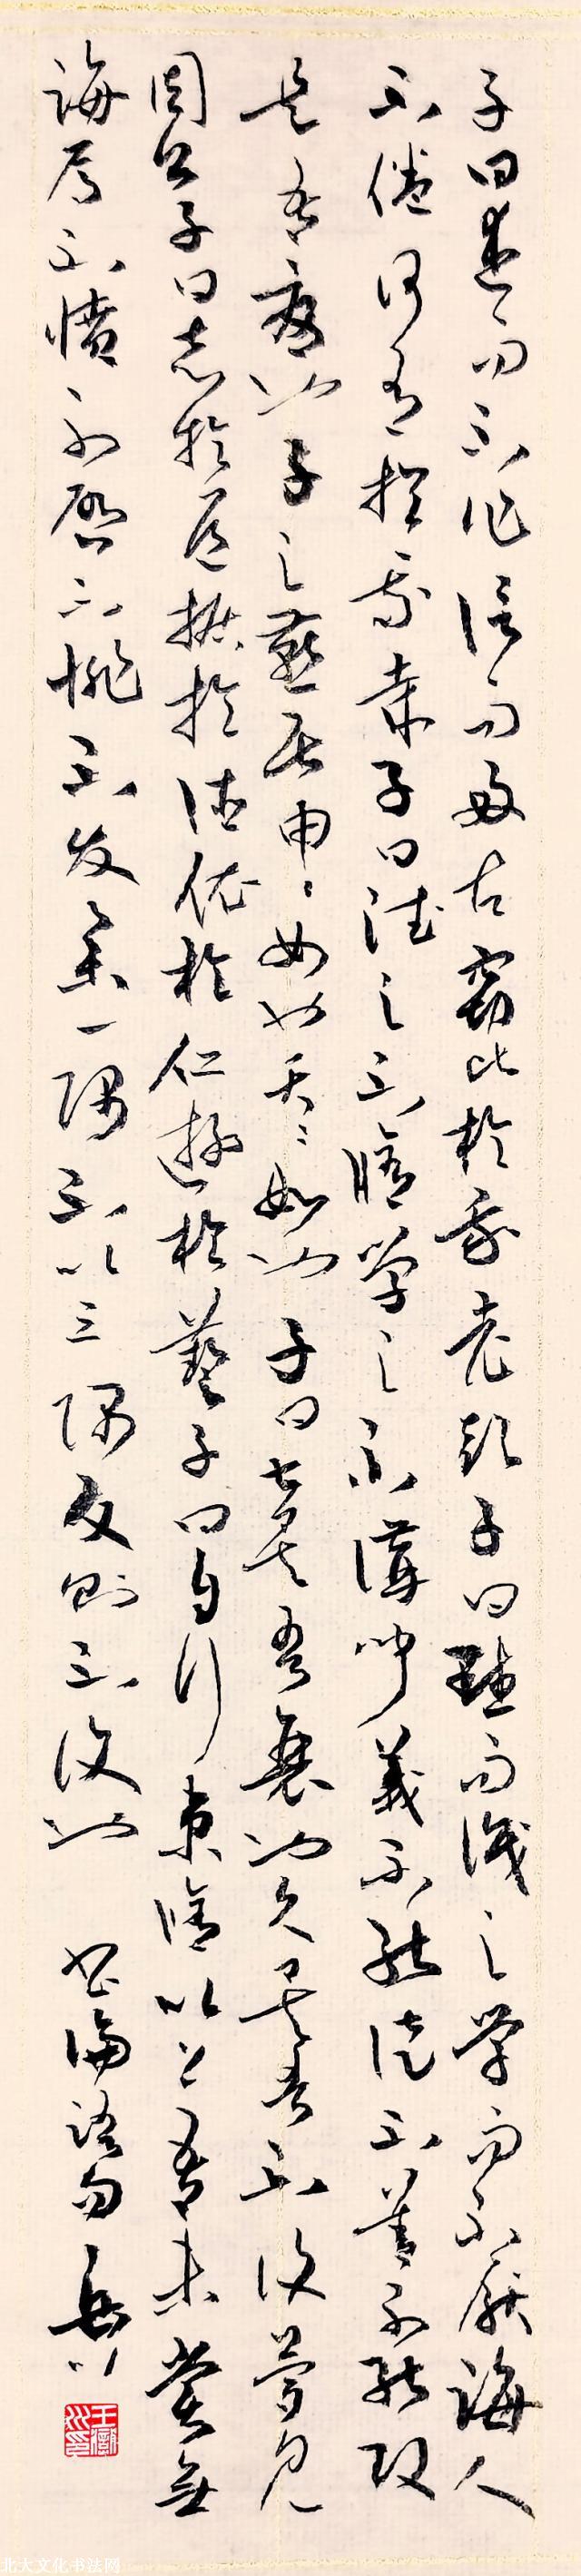 子曰述而不作信而好古竊比於我老彭子曰默而識之學而不厭誨人
不倦何有於我哉子曰德之不脩學之不講聞義不能徙不善不能改
是吾憂也子之燕居申〻如也夭〻如也子曰甚矣吾衰也久矣吾不復夢見
周公子曰志於道據於德依於仁遊於藝子曰自行束脩以上吾未嘗無
誨焉不憤不啟不悱不发舉一隅不以三隅反則不復也 書論語句
北大文化书法网